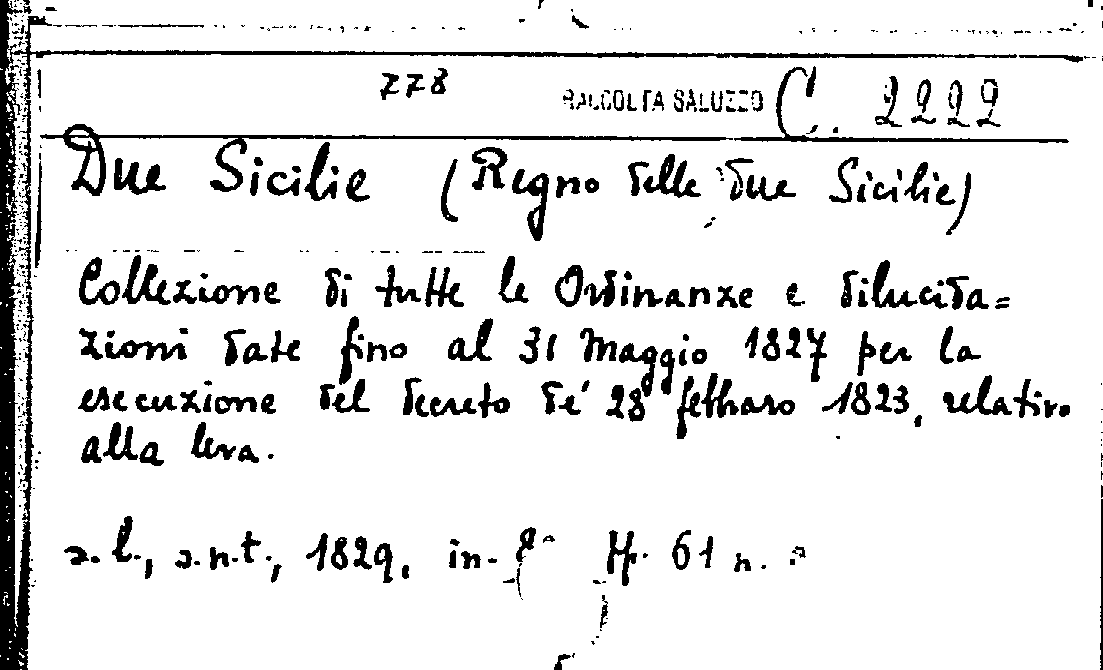 778 RACCOLTA SALUZZO C. 2222
Due Sicilie (Regno delle due Sicilie)
Collezione di tutte le Ordinanze e dilucida=
zioni date fino al 31 Maggio 1827 per la
esecuzione del decreto de' 28 febbraro 1823, relativo
alla leva.
s.l., s.n.t., 1829, in-8° 61 n.